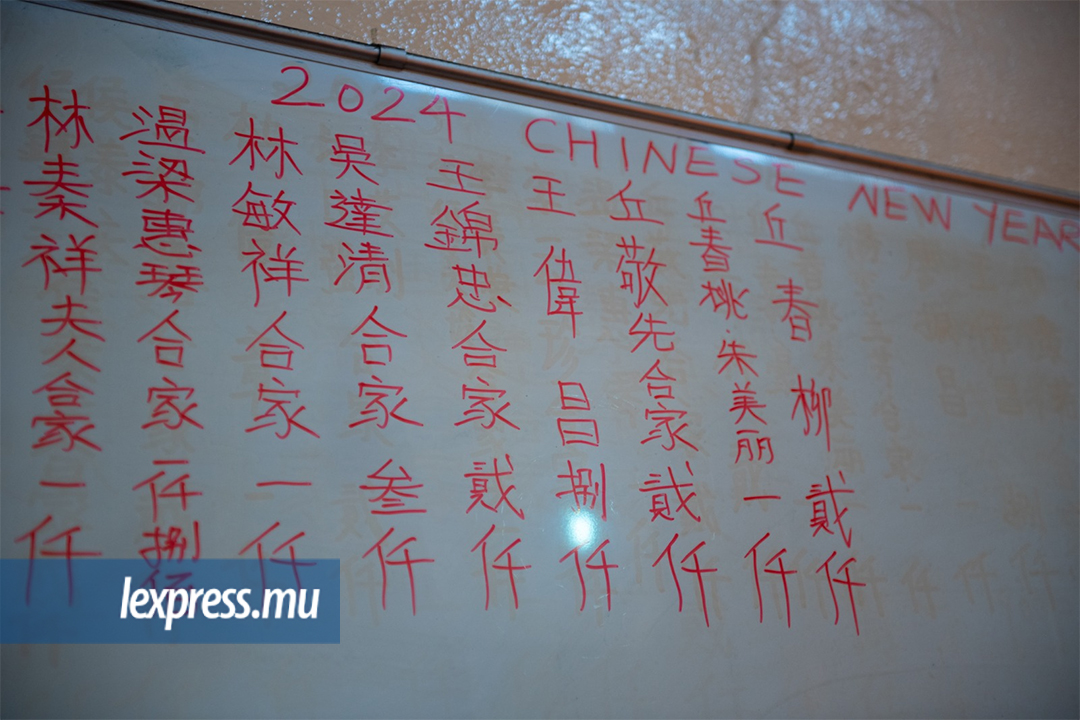 2024 CHINESE NEW YEAR
丘春柳貮仟
丘春桃.朱美丽一仟
丘敬先合家貮仟
王偉昌捌仟
王錦忠合家貮仟
吴達清合家叁仟
林敏祥合家一仟
温梁惠琴合家一仟捌佰
林秦祥夫人合家一仟
lexpress.mu